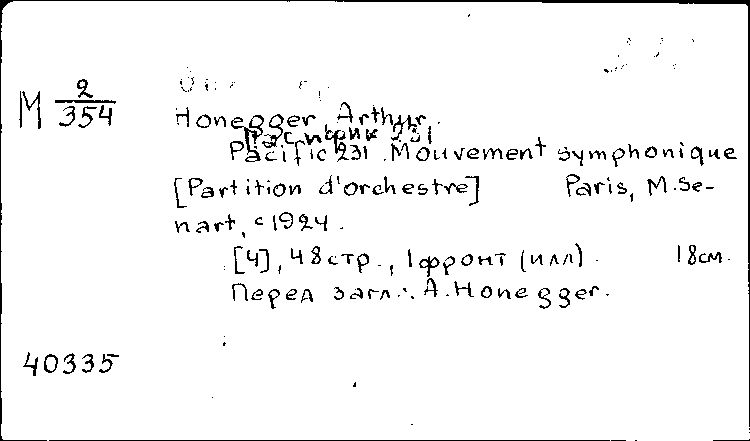 M 2/354
Honegger, Arthur.
Пасифик 231
Pacific 231. Mouvement symphonique
[Partition d'orchestre] Paris, M. Se-
nart, c 1924.
[4], 48 стр., 1 фронт (илл). 18 см.
Перед загл.: A. Honegger.
40335